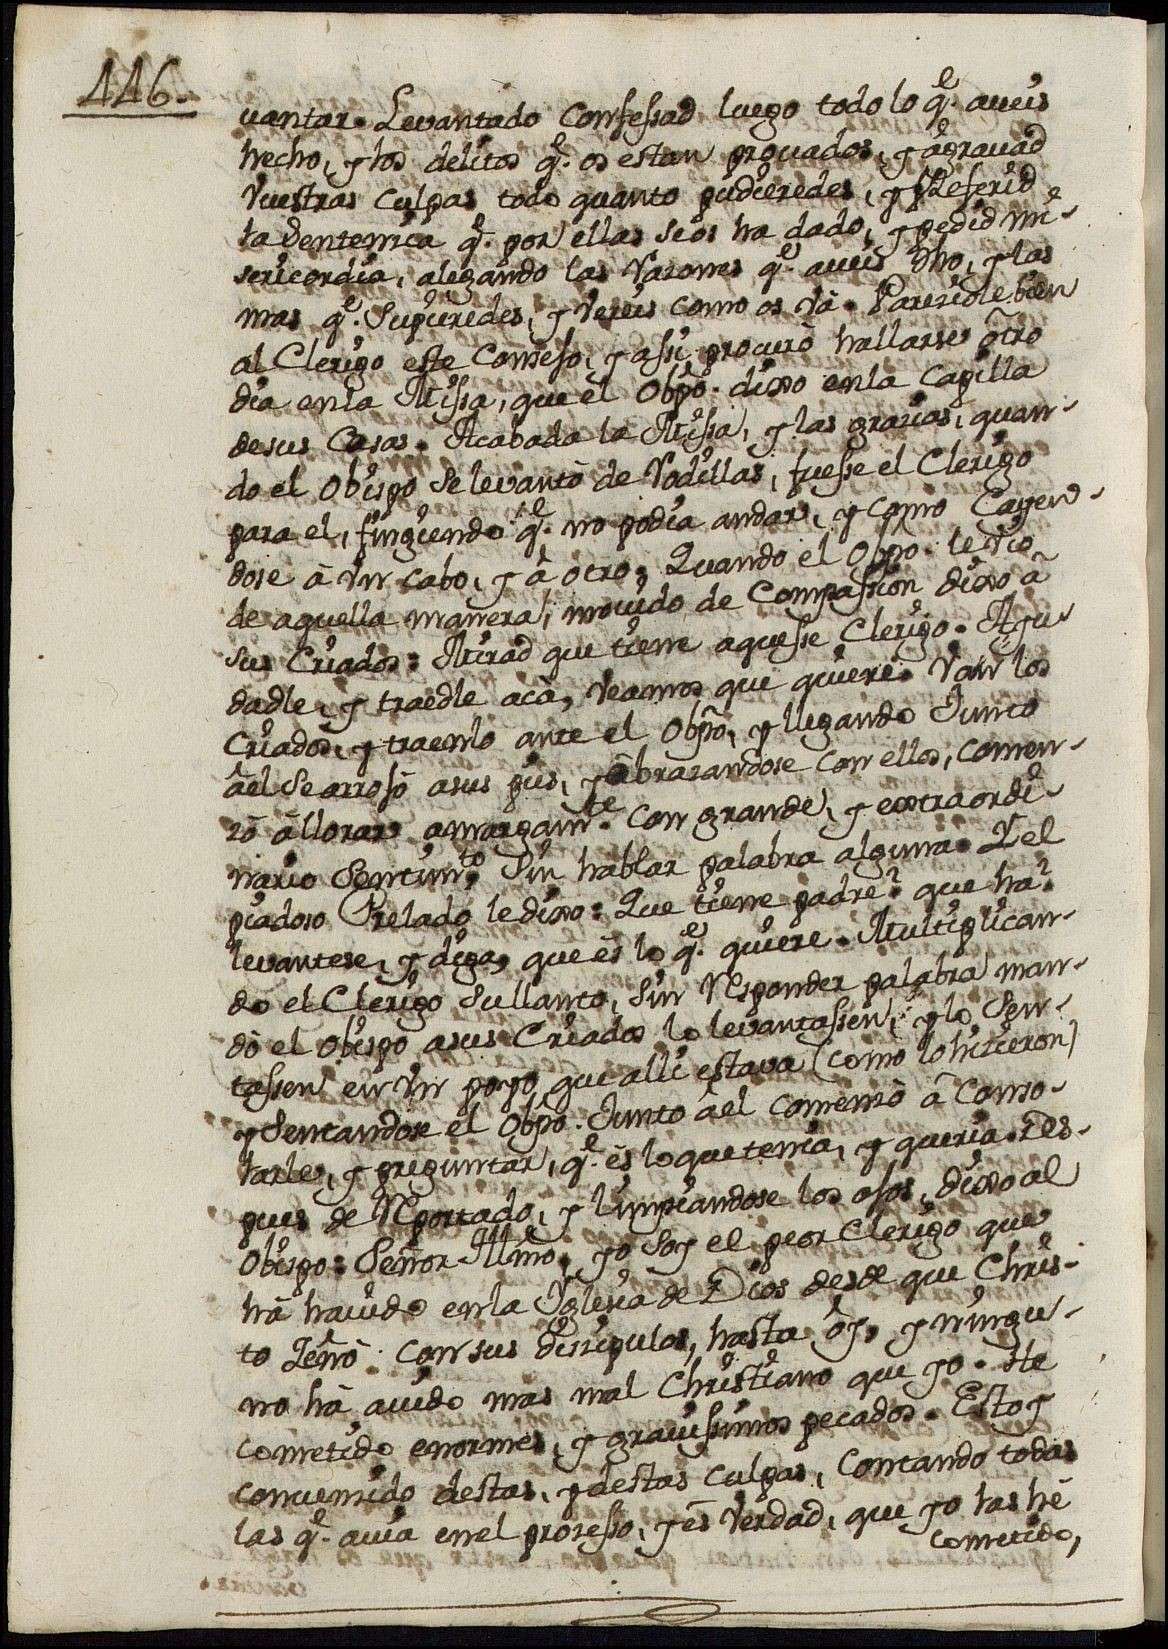 446.
vantar. Levantado Confessad luego todo lo q̃. aveis
hecho, y los delitos q̃. os estan provados, y agravad
Vuestras culpas todo quanto pudieredes, y Referid
la Sentencia q̃. por ellas se os ha dado, y pedid mi-
sericordia, alegando las Razones q̃. aveis dho, y las
mas q̃. Supieredes, y Vereis como os Vâ. Pareciole bien
al Clerigo este Consejo, y assi procurò hallarse otro
dia en la Missa, que el Obpõ. dixo en la Capilla
de sus Casas. Acabada la Missa, y las gracias, quan-
do el Obispo Se levantò de Rodillas, fuesse el Clerigo
para el, fingiendo q̃. no podia andar, y como Cayen-
dose â Vn cabo, y â otro, Quando el Obpõ. le Vio
de aquella manera, movido de Compassion dixo â
sus Criados: Mirad que tiene aquesse Clerigo. Ayu-
dadle, y traedle acà, Veamos que quiere. Van los
Criados, y traenlo ante el Obpõ, y llegando Junto
âel Se arrojò a sus pies, y abrazandose con ellos, comen-
zò â llorar amargamte. con grande, y extraordi-
nario Sentimto. Sin hablar palabra alguna. Y el
piadoso Prelado le dixo: Que tiene padre? que ha?
levantese, y diga, que ês lo q̃. quiere. Multiplican-
do el Clerigo Su llanto, Sin Responder palabra man-
dò el Obispo a sus Criados lo levantassen, y lo Sen-
tassen en Vn poyo que alli estava (como lo hicieron)
y Sentandose el Obpõ. Junto âel comenzò â Conso-
larle, y preguntar, q̃. ês lo que tenia, y queria. Des-
pues de Reportado, y limpiandose los ojos, dixo al
Obispo: Señor Illmo, yo Soy el peor Clerigo que
hà havido en la Iglesia de Dios desde que Chris-
to Zenò con sus discipulos, hasta oy, y ningu-
no hà avido mas mal Christiano que yo. He
cometido enormes, y gravissimos pecados. Estoy
convencido destas, y destas culpas, Contando todas
las q̃. avia en el processo, y ês Verdad, que yo las hê
cometido,